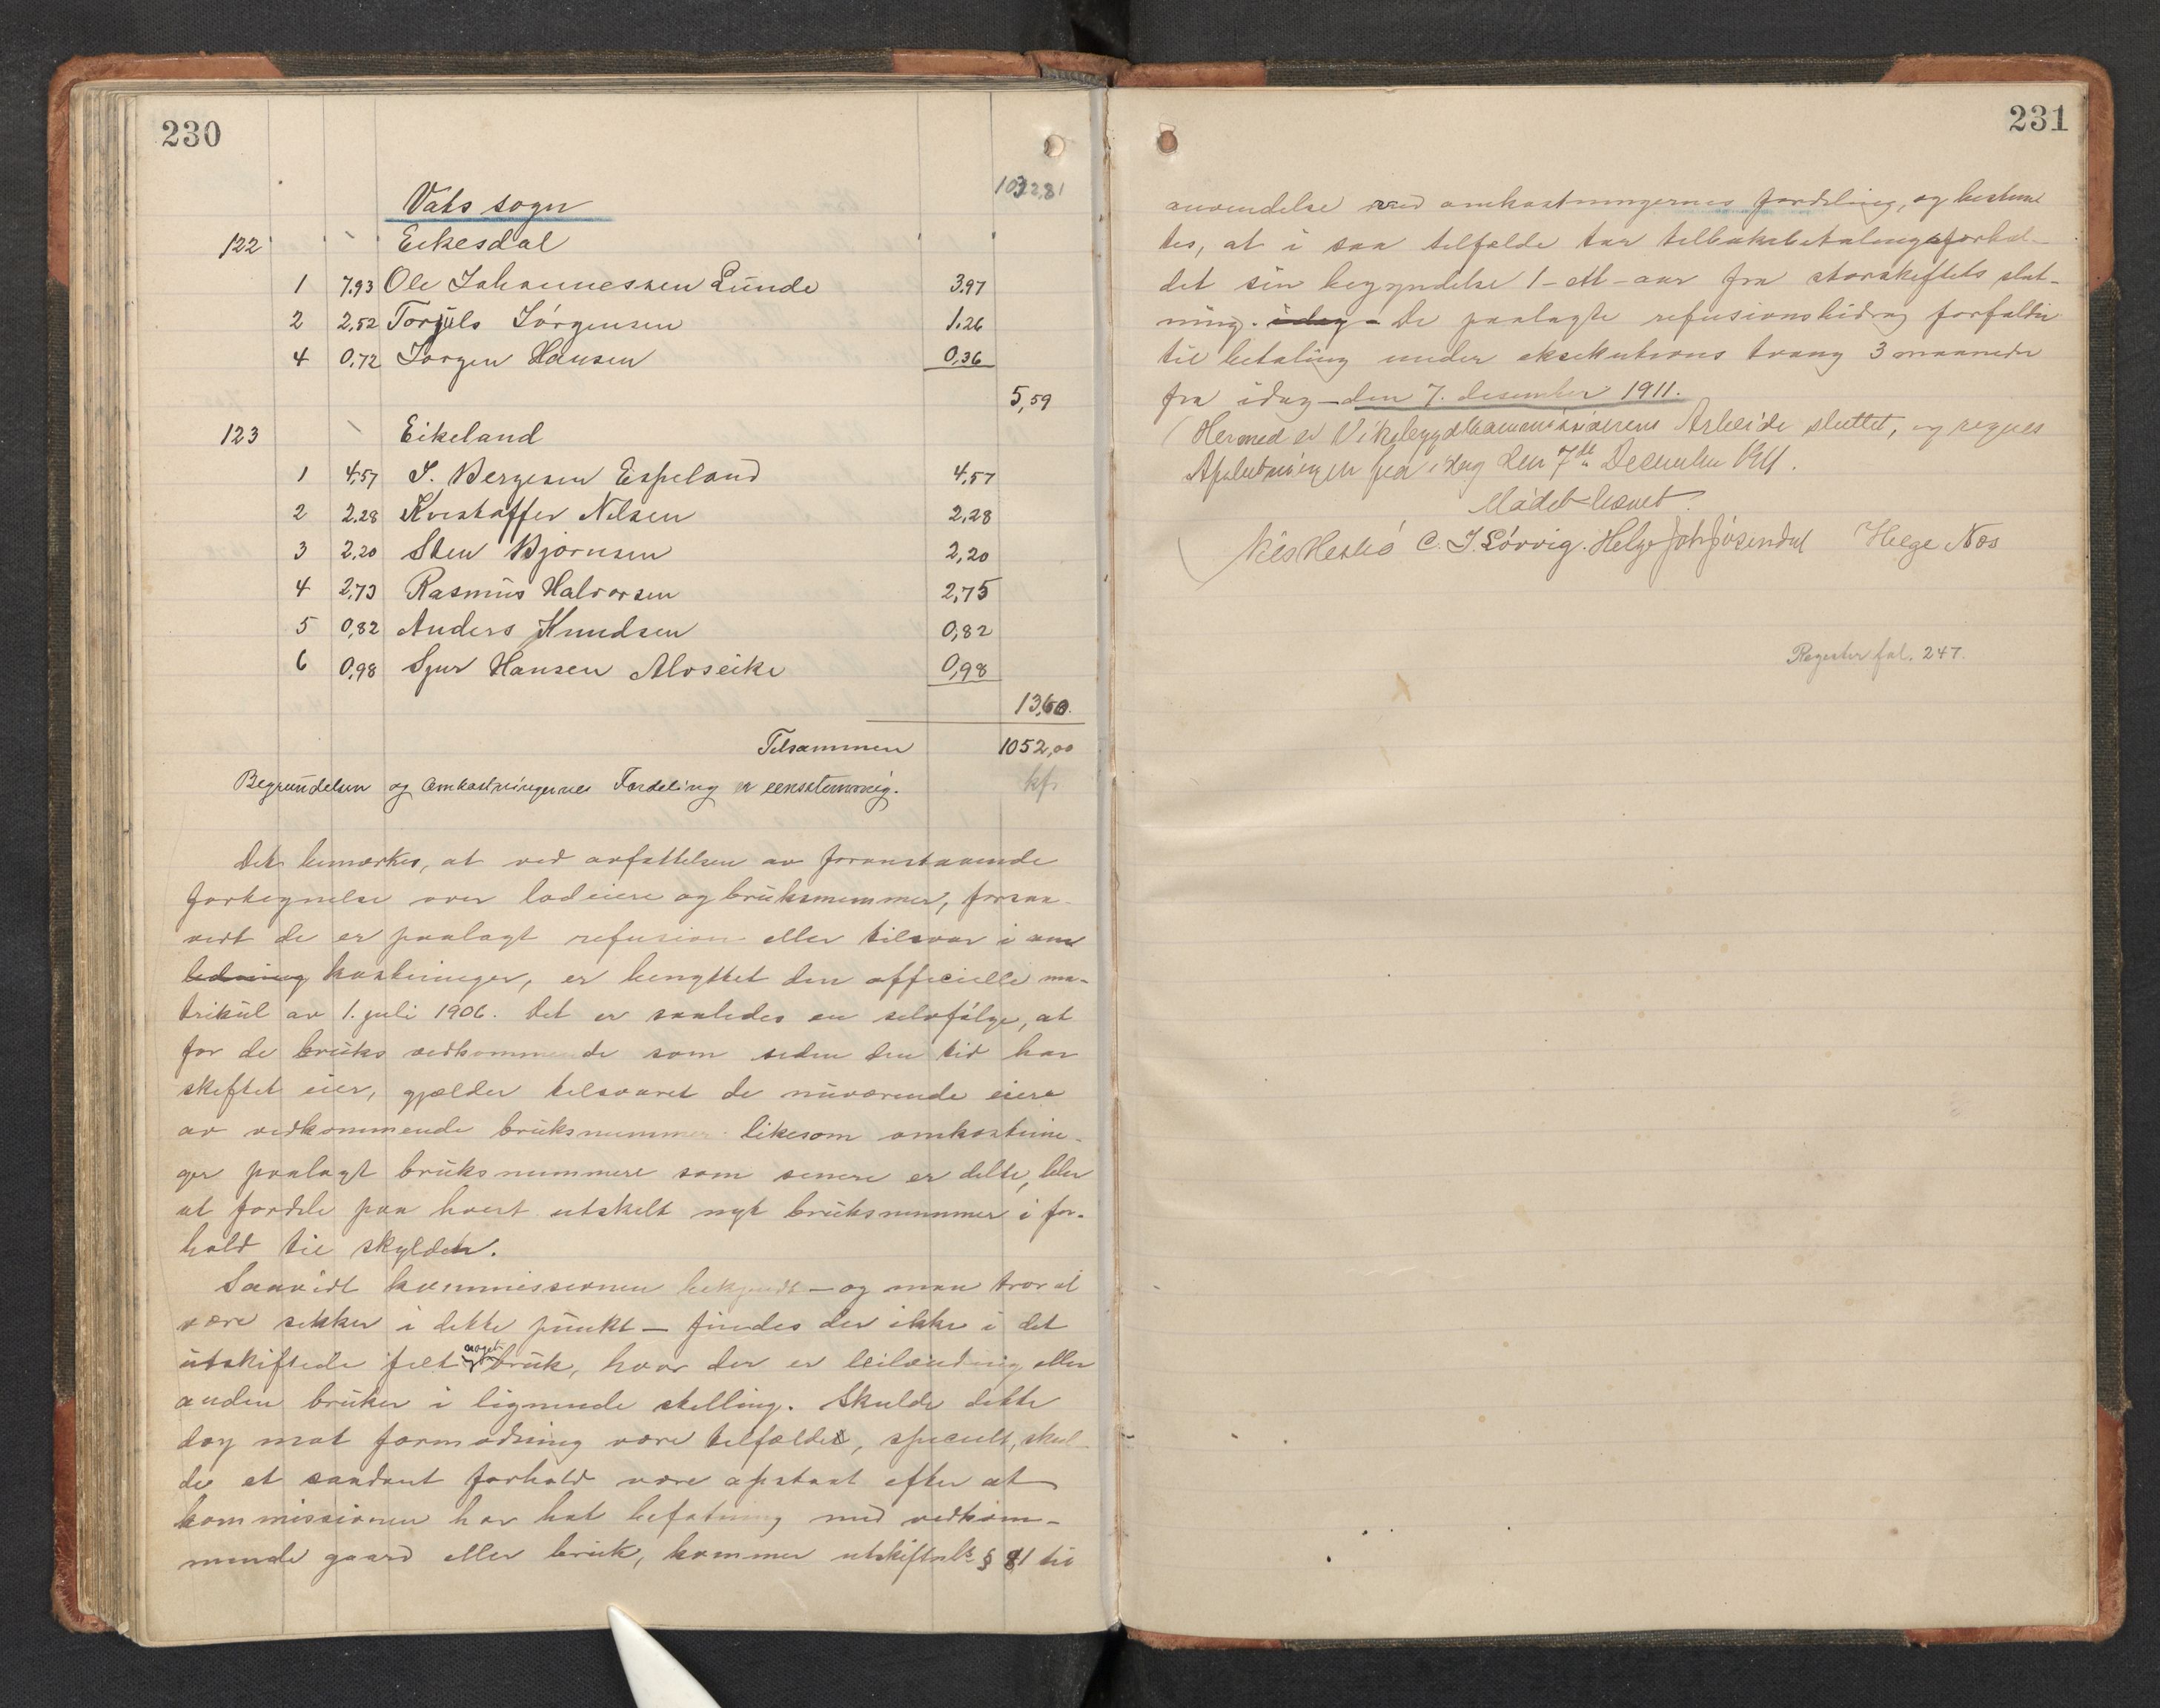 230
1032,81
Vats sogn
122 Eikesdal
1 7.93 Ole Johannessen Lunde 3.97
2 2,52 Torjuls Jörgensen 1.26
4 0.72 Jorgen Hansen 0,36
5,59
123 Eikeland
1 4,57 S. Bergesen Espeland 4,57
2 2.28 Kristoffer Nilsen 2,28
3 2,20 Sten Bjørnsen 2,20
4 2,73 Rasmus Halvorsen 2,75
5 0,82 Anders Knudsen 0,82
6 0,98 Sjur Hansen Alvseike 0,98
13,60.
Tilsammen 1052,00
Begrundelsen og Omkostningernes Fordeling er eenstemmig.
Det bemærkes, at ved avfattelsen av foranstaaende
fortegnelse over lodeiere og bruksnummer, forsaa-
vidt de er paalagt refusion eller tilsvar i om
ledning kostninger, er benyttet den officielle ma-
trikul av 1. juli 1906. Det er saaledes en selvfølge, at
for de bruks vedkommende som siden den tid har
skiftet eier, gjælder tilsvaret de nuværende eiere
av vedkommende bruksnummer likesom omkostnin-
ger paalagt bruksnummere som senere er delte, blir
at fordele paa hvert utskilt nyt bruksnummer i for-
hold til skylden.
Saavidt kommissionen bekjendt – og man tror at
være sikker i dette punkt – findes der ikke i det
utskiftede felt noget bruk, hvor der er leilænding eller
anden bruker i lignende stilling. Skulde dette
dog mot formodning være tilfældet, specielt, skul-
de et saadant forhold være opstaat efter at
kommissionen har hat befatning med vedkom-
mende gaard eller bruk, kommer utskiftnls § 81 til
231
anvendelse ved omkostningernes fordeling, og bestem
tes, at i saa tilfælde tar tilbakebetalingsforhol-
det sin begyndelse 1 – ett – aar fra storskiftets slut-
ning. idag – De paalagte refusionsbidrag forfalder
til betaling under eksekutions tvang 3 maaneder
fra idag – den 7. desember 1911.
Hermed er Vikebygdkommissionens Arbeide sluttet, og regnes
Afslutningen fra idag den 7de December 1911.
Mødet hævet.
Nils Heskö C. J. Lörvig. Helge Joh Jösendal Helge Næs
Register fol. 247.